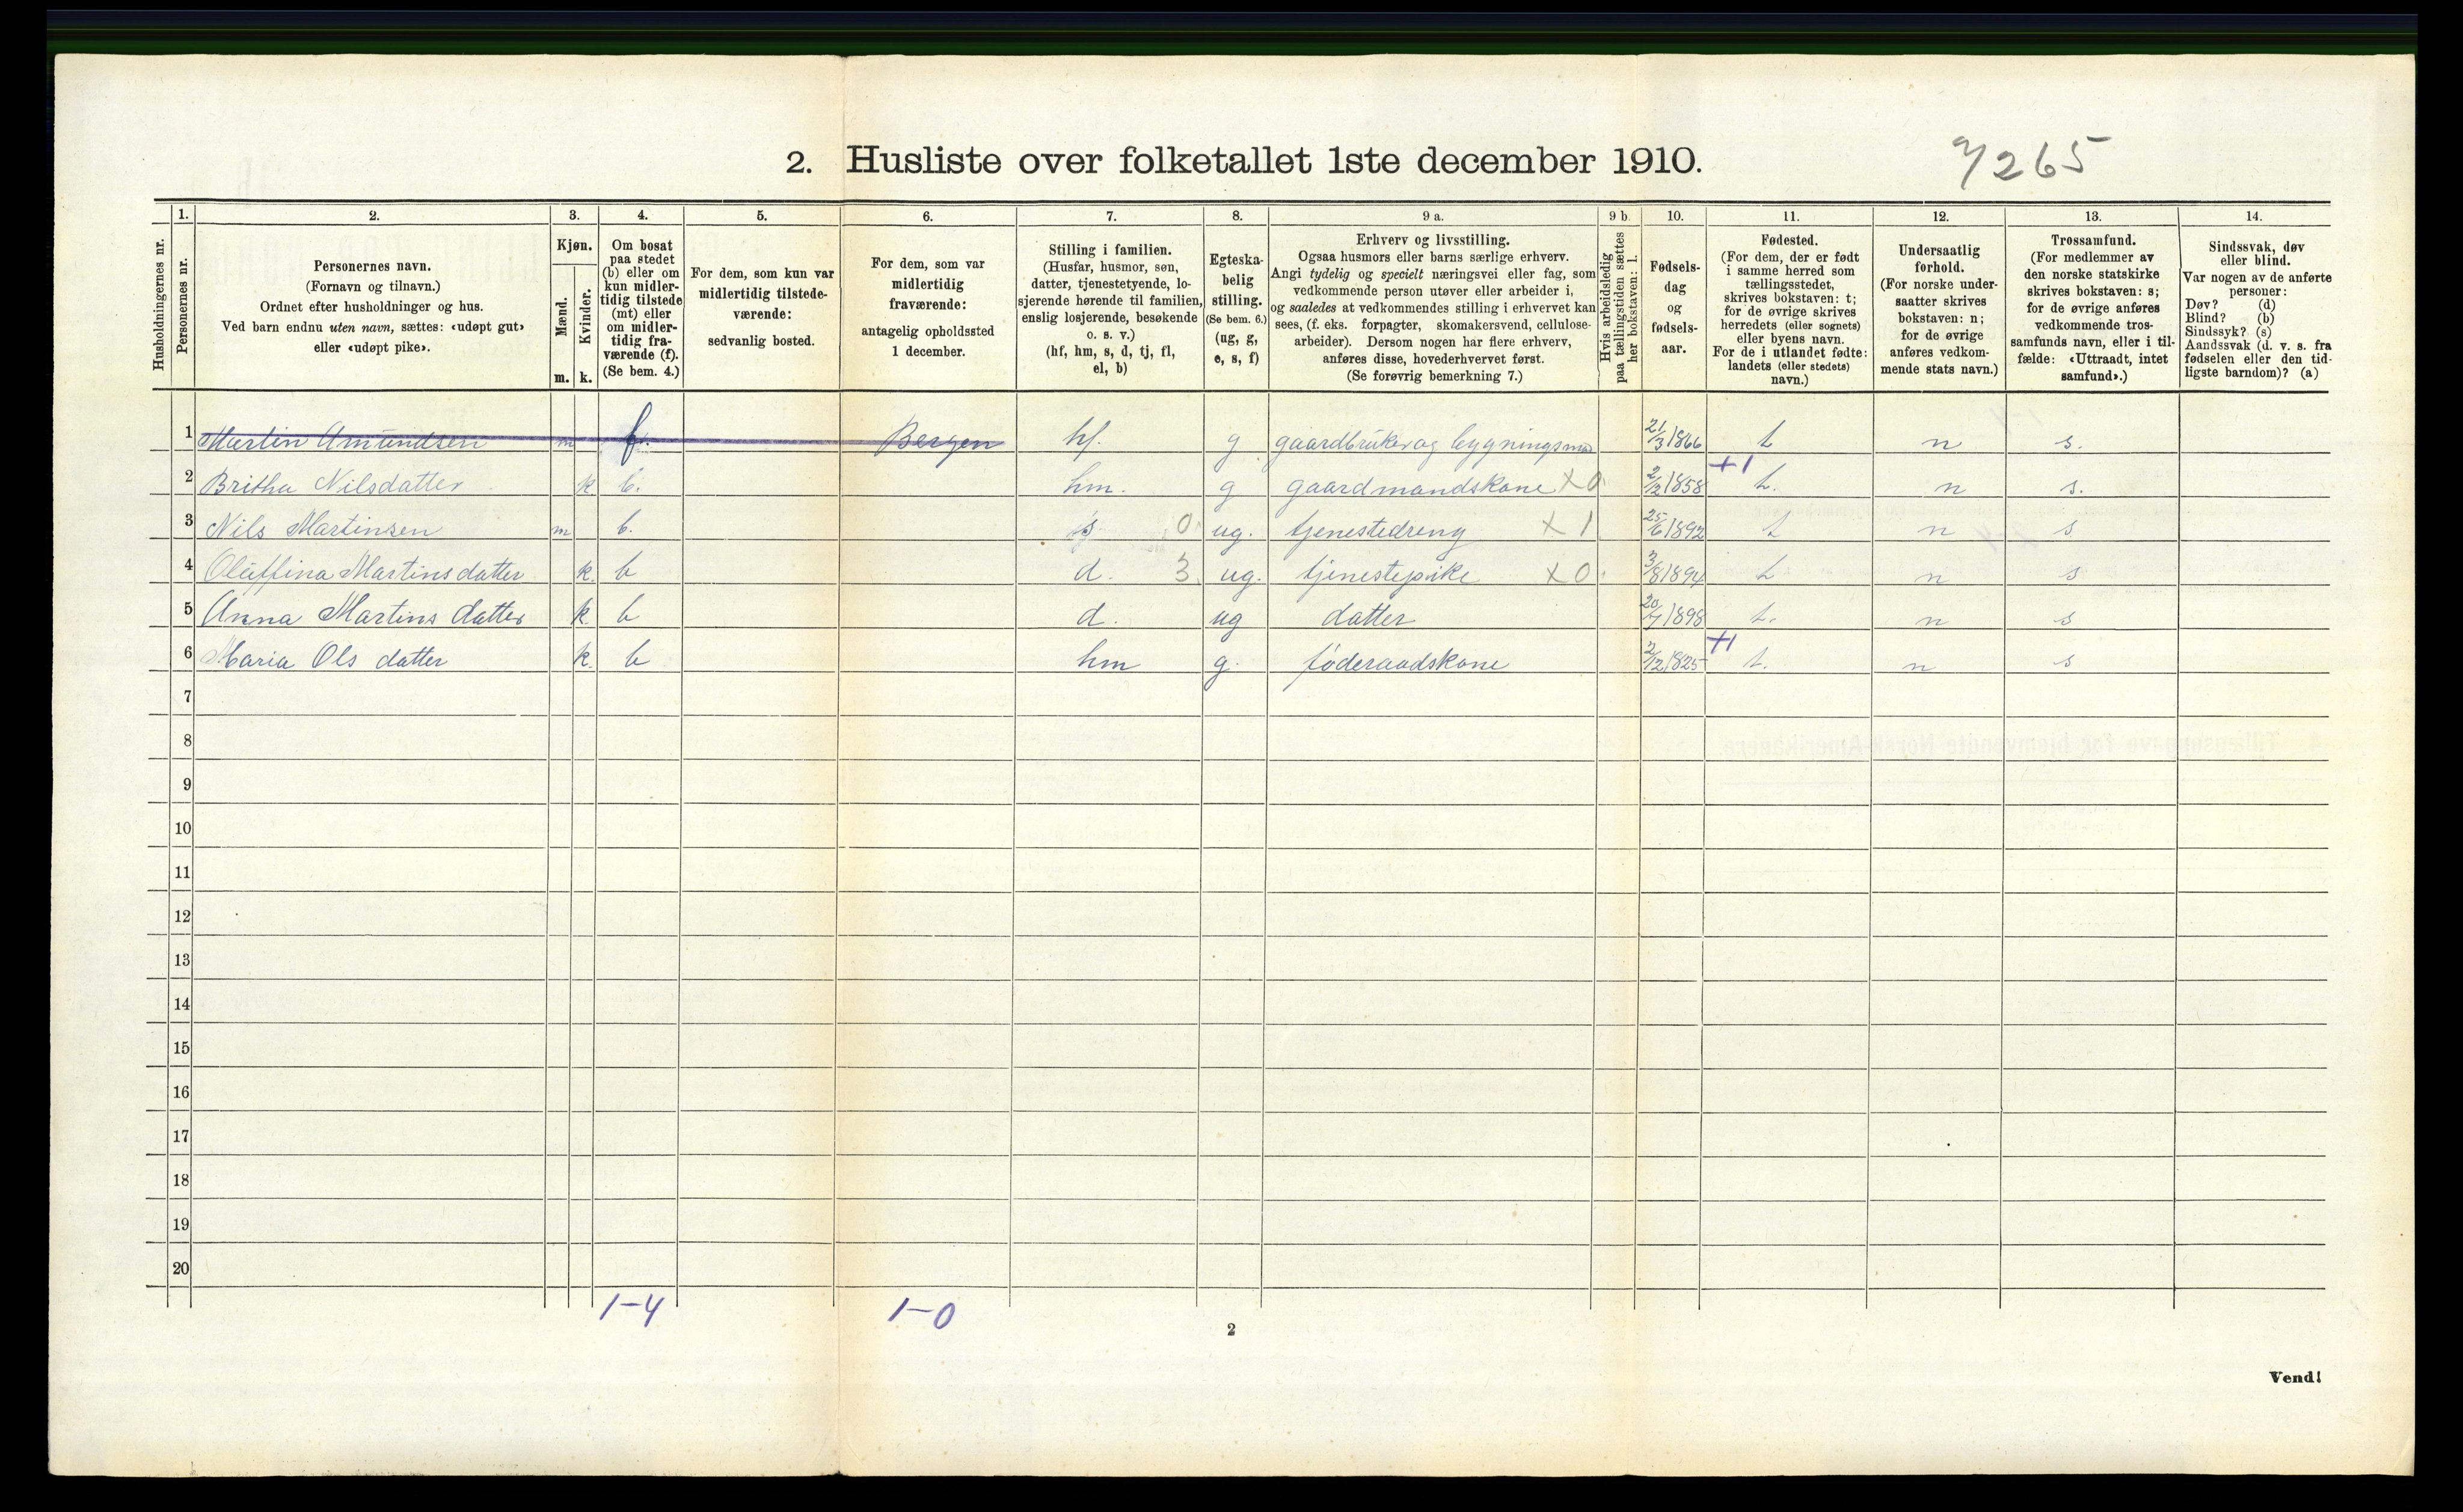 2. Husliste over folketallet 1ste december 1910.
7265
Husholdningernes nr.
1.
Personernes nr.
2.
Personernes navn.
(Fornavn og tilnavn.)
Ordnet efter husholdninger og hus.
Ved barn endnu uten navn, sættes: «udøpt gut»
eller «udøpt pike».
3.
Kjøn.
Mænd.
Kvinder.
m. k.
4.
Om bosat
paa stedet
(b) eller om
kun midler-
tidig tilstede
(mt) eller
om midler-
tidig fra-
værende (f).
(Se bem. 4.)
5.
For dem, som kun var
midlertidig tilstede-
værende:
sedvanlig bosted.
6.
For dem, som var
midlertidig
fraværende:
antagelig opholdssted
1 december.
7.
Stilling i familien.
(Husfar, husmor, søn,
datter, tjenestetyende, lo-
sjerende hørende til familien,
enslig losjerende, besøkende
o. s. v.)
(hf, hm, s, d, tj, fl,
el, b)
8.
Egteska-
belig
stilling.
(Se bem. 6.)
(ug, g,
e, s, f)
9 a.
Erhverv og livsstilling.
Ogsaa husmors eller barns særlige erhverv.
Angi tydelig og specielt næringsvei eller fag, som
vedkommende person utøver eller arbeider i,
og saaledes at vedkommendes stilling i erhvervet kan
sees, (f. eks. forpagter, skomakersvend, cellulose-
arbeider). Dersom nogen har flere erhverv,
anføres disse, hovederhvervet først.
(Se forøvrig bemerkning 7.)
9 b.
Hvis arbeidsledig
paa tællingstiden sættes
her bokstaven: l.
10.
Fødsels-
dag
og
fødsels-
aar.
11.
Fødested.
(For dem, der er født
i samme herred som
tællingsstedet,
skrives bokstaven: t;
for de øvrige skrives
herredets (eller sognets)
eller byens navn.
For de i utlandet fødte:
landets (eller stedets)
navn.)
12.
Undersaatlig
forhold.
(For norske under-
saatter skrives
bokstaven: n;
for de øvrige
anføres vedkom-
mende stats navn.)
13.
Trossamfund.
(For medlemmer av
den norske statskirke
skrives bokstaven: s;
for de øvrige anføres
vedkommende tros-
samfunds navn, eller i til-
fælde: «Uttraadt, intet
samfund».)
14.
Sindssvak, døv
eller blind.
Var nogen av de anførte
personer:
Døv? (d)
Blind? (b)
Sindssyk? (s)
Aandssvak (d. v. s. fra
fødselen eller den tid-
ligste barndom)? (a)
1 Martin Amundsen m f. Bergen hf. g gaardbruker og bygningsmd 21/3 1866 t n s.
2 Britha Nilsdatter k b. hm. g gaardmandskone X0 2/2 1858 +1 t. n s.
3 Nils Martinsen m b. s 0 ug. tjenestedreng X 1 25/6 1892 t n s
4 Oluffina Martinsdatter k. b d. 3 ug. tjenestepike X0. 3/8 1894 t n s
5 Anna Martins datter k. b d. ug datter 20/7 1898 t. n s
6 Maria Ols datter k. b hm g. føderaadskone 2/12 1825 +1 t. n s
7
8
9
10
11
12
13
14
15
16
17
18
19
20
1-4 1-0
2
Vend!